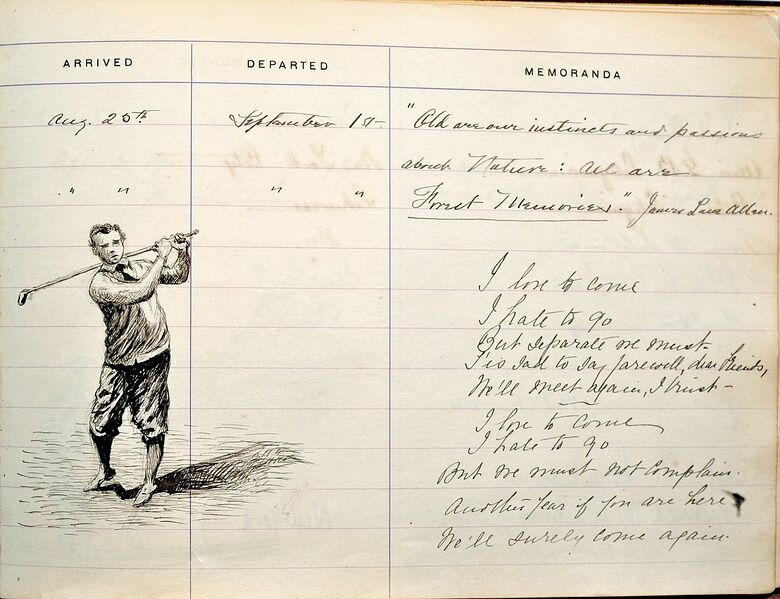 ARRIVED DEPARTED MEMORANDA
Aug. 25th September 1st "Old are our instincts and passions
about Nature: all are
" " " " Forest Memories." James Lane Allen.
I love to come
I hate to go
But separate we must-
'Tis sad to say farewell, dear friends,
We'll meet again, I trust-
I love to come
I hate to go
But we must not complain.
Another year if you are here
We'll surely come again.